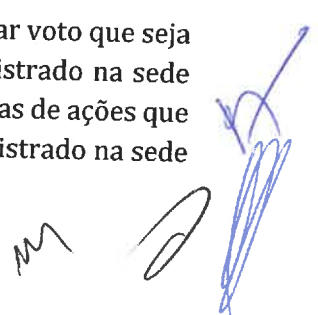 ar voto que seja
istrado na sede
as de ações que
istrado na sede